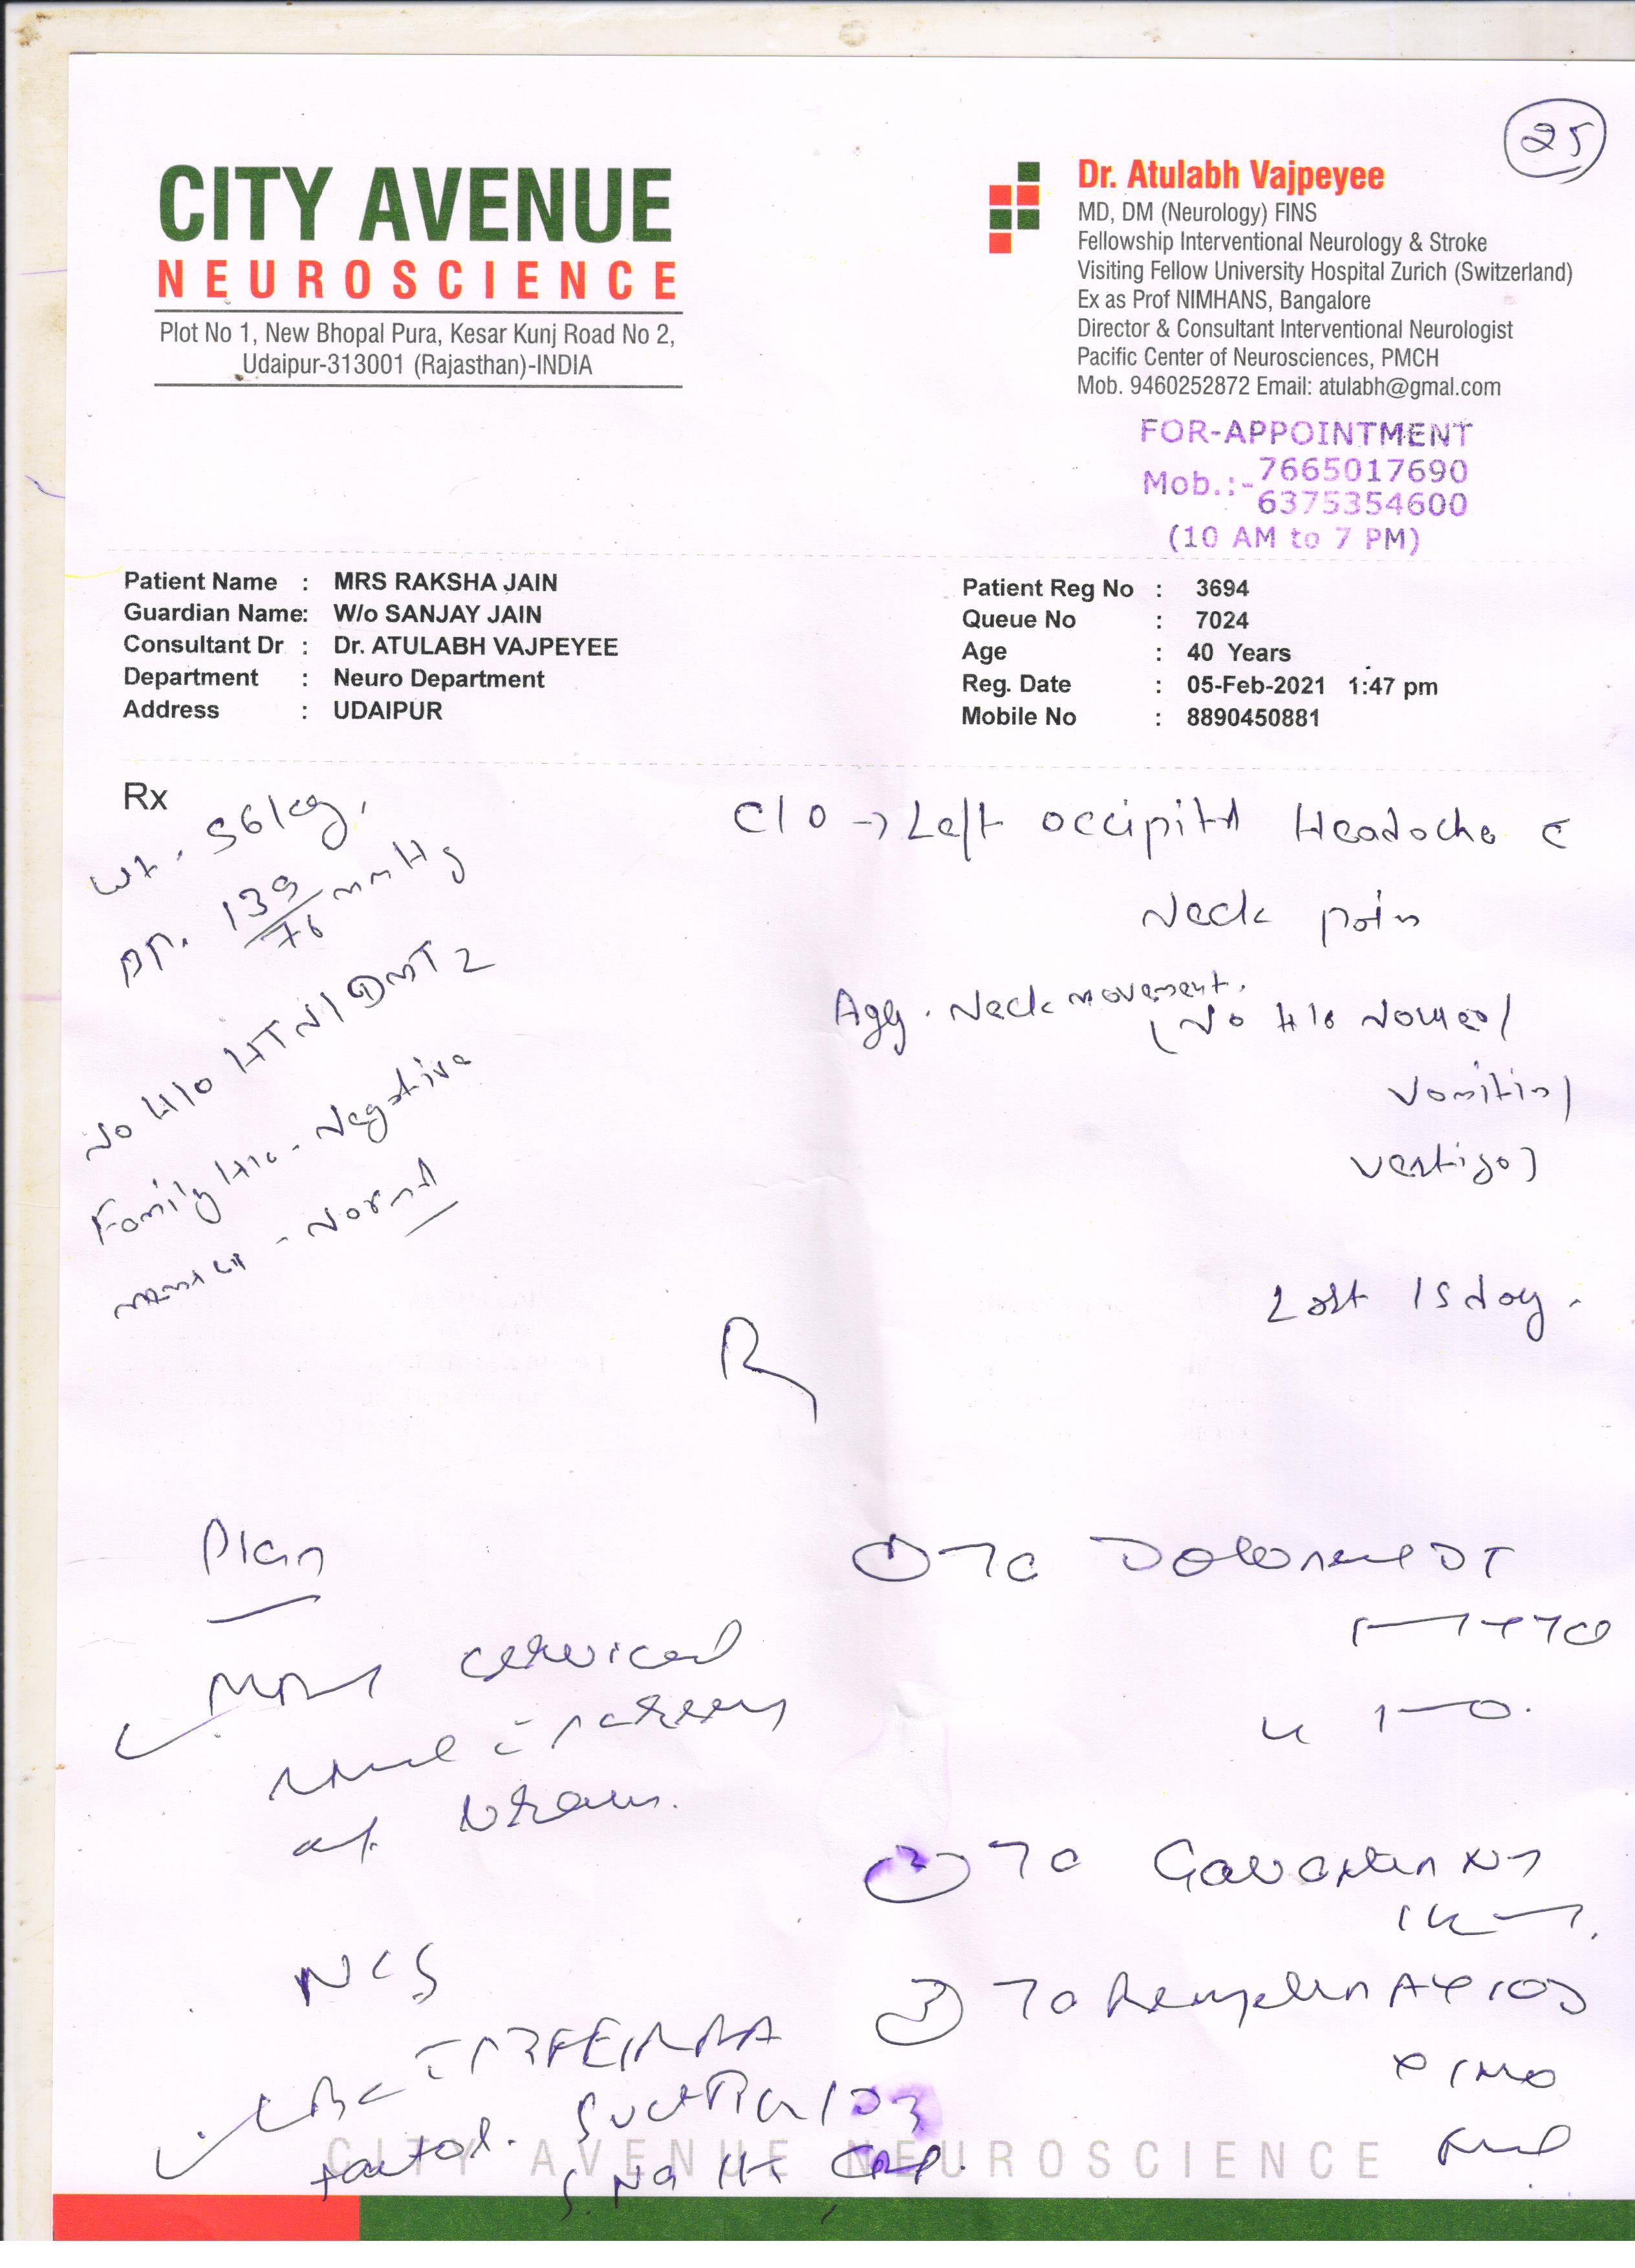 25
CITY AVENUE
NEUROSCIENCE
Plot No 1, New Bhopal Pura, Kesar Kunj Road No 2,
Udaipur-313001 (Rajasthan)-INDIA
Dr. Atulabh Vajpeyee
MD, DM (Neurology) FINS
Fellowship Interventional Neurology & Stroke
Visiting Fellow University Hospital Zurich (Switzerland)
Ex as Prof NIMHANS, Bangalore
Director & Consultant Interventional Neurologist
Pacific Center of Neurosciences, PMCH
Mob. 9460252872 Email: atulabh@gmal.com
FOR-APPOINTMENT
Mob.:- 7665017690
6375354600
(10 AM to 7 PM)
Patient Name : MRS RAKSHA JAIN
Guardian Name: W/o SANJAY JAIN
Consultant Dr : Dr. ATULABH VAJPEYEE
Department : Neuro Department
Address : UDAIPUR
Patient Reg No : 3694
Queue No : 7024
Age : 40 Years
Reg. Date : 05-Feb-2021 1:47 pm
Mobile No : 8890450881
Rx
wt. 56kg,
BP. 139/76 mmHg
No H/o HTN/DMT2
Family H/o - Negative
- Normal
C/O → Left occipital Headache c
Neck pain
Agg. Neck movement.
(No H/o Nausea/
Vomiting/
vertigo)
Last 15 day.
R
Plan
MRI cervical
screening
of brain.
NCS
CBC
S. Na K
① DT
1-0.
② Tc Gabapin NT
③ Tc
CITY AVENUE NEUROSCIENCE